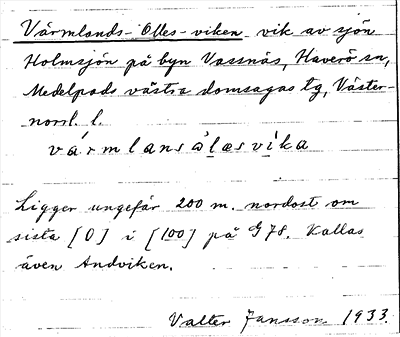 Värmlands-Olles-viken vik av sjön
Holmsjön på byn Vassnäs, Haverö sn,
Medelpads västra domsagas tg, Väster-
norrl. l.
värmlansålæsvika
Ligger ungefär 200 m. nordost om
sista [0] i [100] på G78. Kallas
även Andviken.
Valter Jansson 1933.